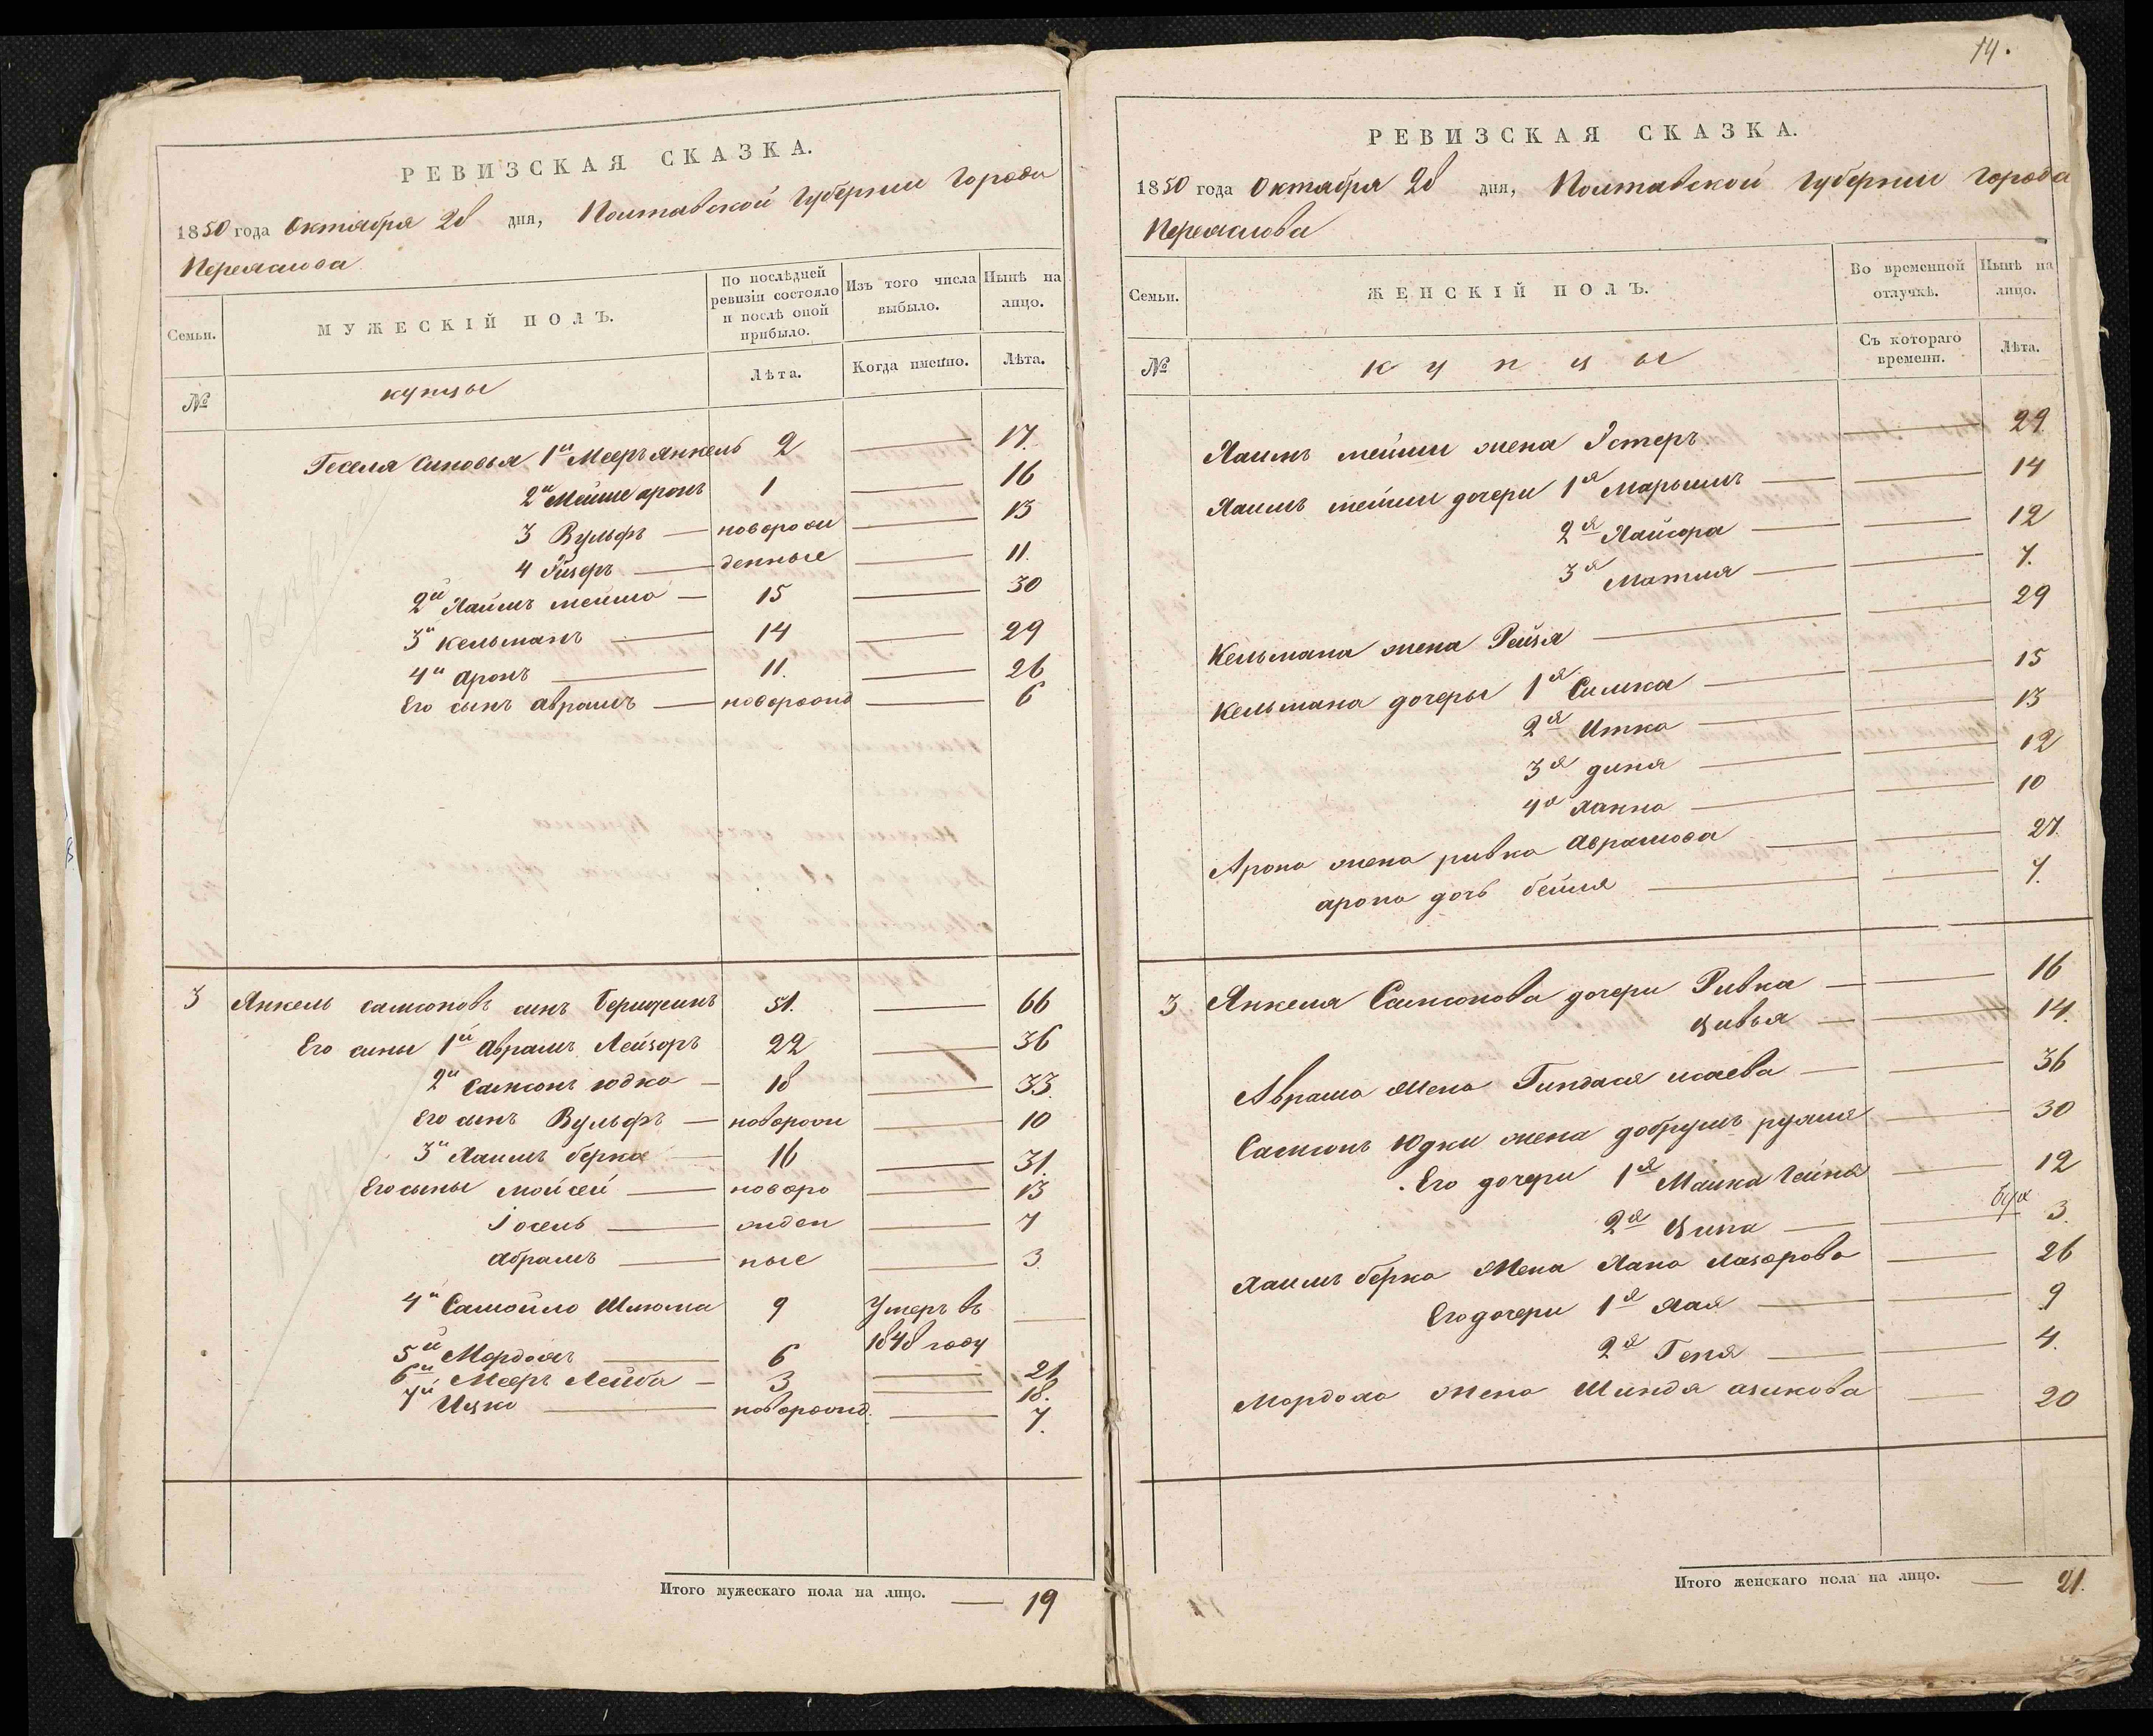 РЕВИЗСКАЯ СКАЗКА.
1850 года Октября 28 дня, Полтавской Губернии Города
Переяслова
Семьи.
МУЖЕСКІЙ ПОЛЪ.
По послѣдней ревизіи состояло и послѣ оной прибыло.
Изъ того числа выбыло.
Нынѣ на лицо.
№
купцы
Лѣта.
Когда именно.
Лѣта.
Геселя Синовья 1й Мееръ Янкель 2 — 17.
2й Мейше аронъ 1 — 16
3 Вульфъ — новорож — 13
4 Лйзеръ — денные — 11.
2й Хаимъ мейша — 15 — 30
3й Кельманъ — 14 — 29
4й Аронъ — 11. — 26
Его сынъ Аврамъ — новорожд — 6
3 Янкель самсоновъ синъ 51. — 66
Его сины 1й Аврамъ Лейзоръ 22 — 36
2й Самсонъ юдка — 18 — 33.
Его сынъ Вульфъ — новорож — 10
3й Хаимъ берка — 16 — 31.
Его сыны Мойсей — новоро — 13
Іосель — жден — 7
Абрамъ — ные — 3.
4й Самойло Шлюма 9 Умеръ въ —
1848 году
5й Мордохъ — 6 — 21
6й Мееръ Лейба — 3 — 18.
7й Ицко — новорожд. — 7.
Итого мужескаго пола на лицо. — 19
14.
РЕВИЗСКАЯ СКАЗКА.
1850 года Октября 28 дня, Полтавской Губернии города
Переяслова
Семьи.
ЖЕНСКІЙ ПОЛЪ.
Во временной отлучкѣ.
Нынѣ на лицо.
№
купцы
Съ котораго времени.
Лѣта.
Хаимъ мейши жена Эстеръ — 29
Хаимъ мейши дочери 1я Марьимъ — 14
2я Хайсора — 12
3я Матля — 7.
Кельмана жена Рейзя — 29
Кельмана дочеры 1я Симка — 15
2я Итка — 13
3я дина — 12
4я ханна — 10
Арона жена ривка Аврамова — 27.
арона дочь бейля — 7.
3 Янкеля Самсонова дочери Ривка — 16
Цивья — 14.
Аврама жена исаева — 36
Самсонъ Юдки жена добрушъ — 30
Его дочери 1я Малка — 12
2я Ципа — 3.
Хаимъ берка жена Хана лазорова — 26
Его дочери 1я Хая — 9
2я Геня — 4.
Мордоха жена Шиндя ацикова — 20
Итого женскаго пола на лицо. — 21.